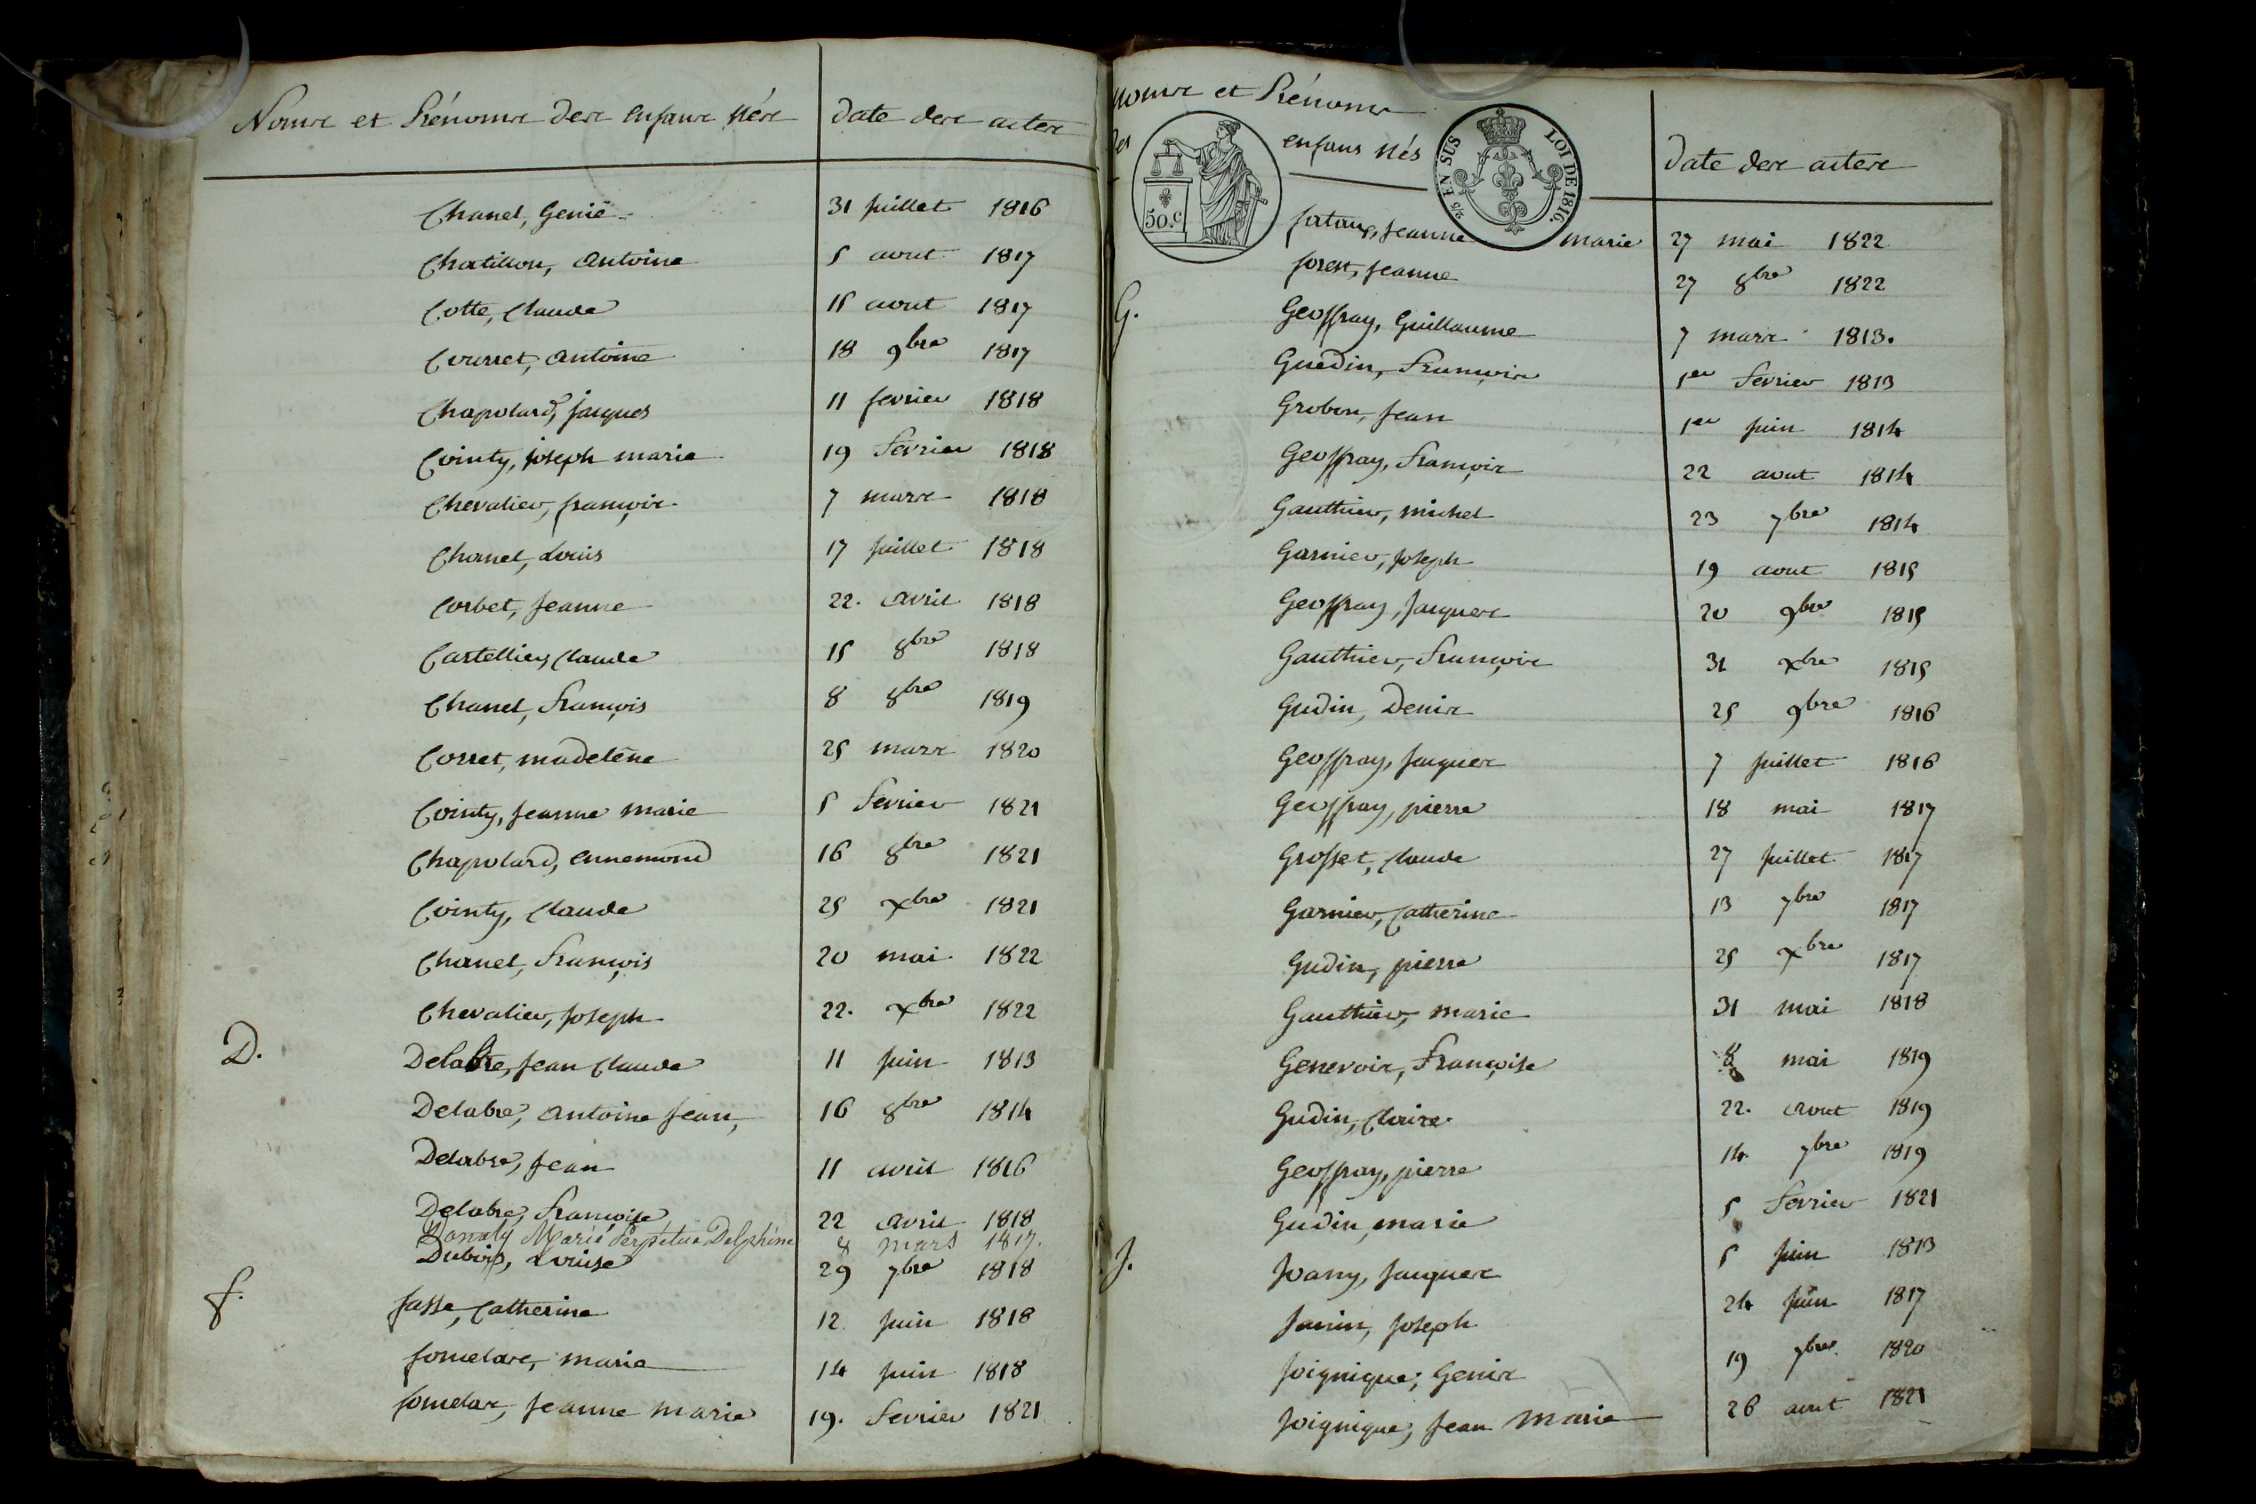 Noms et Prénoms des enfans nés | date des actes
Chanel, Genié 31 juillet 1816
Chatillon, Antoine 5 aout 1817
Cotte, Claude 15 aout 1817
Courret, antoine 18 9bre 1817
Chapolard, jacques 11 fevrier 1818
Cointy, joseph marie 19 fevrier 1818
Chevalier, françois 7 mars 1818
Chanel, Louis 17 juillet 1818
Corbet, jeanne 22. avril 1818
Castellier, Claude 15 8bre 1818
Chanel, François 8 8bre 1819
Corret, madelène 25 mars 1820
Cointy, jeanne marie 5 fevrier 1821
Chapolard, ennemond 16 8bre 1821
Cointy, Claude 25 xbre 1821
Chanel, François 20 mai 1822
Chevalier, joseph 22. xbre 1822
D. Delabre, jean Claude 11 juin 1813
Delabre, antoine jean, 16 8bre 1814
Delabre, jean 11 avril 1816
Delabre, Françoise 22 avril 1818
Donaty Marie Perpétue Delphine 8 mars 1817.
Dubois, Louise 29 7bre 1818
f. fasse, Catherine 12 juin 1818
fomelare, marie 14 juin 1818
fomelar, jeanne marie 19. fevrier 1821
noms et Prénoms
des enfans nés
date des actes
50.c
2/5 EN SUS LOI DE 1816.
jeanne marie 27 mai 1822
forest, jeanne 27 8bre 1822
G. Geoffray, Guillaume 7 mars 1813.
Guedin, François 1er fevrier 1813
Grobon, jean 1er juin 1814
Geoffray, François 22 aout 1814
Gauthier, michel 23 7bre 1814
Garnier, joseph 19 aout 1815
Geoffray, jacques 20 9bre 1815
Gauthier, François 31 xbre 1815
Gudin, Denis 25 9bre 1816
Geoffray, jacques 7 juillet 1816
Geoffray, pierre 18 mai 1817
Grosset, Claude 27 juillet 1817
Garnier, Catherine 13 7bre 1817
Gudin, pierre 25 xbre 1817
Gauthier, marie 31 mai 1818
Genevois, Françoise 8 mai 1819
Gudin, Claire 22. aout 1819
Geoffray, pierre 14 7bre 1819
Gudin, marie 5 fevrier 1821
J. Joany, jacques 5 juin 1813
Janin, joseph 24 juin 1817
Joignique, Genis 19 7bre 1820
Joignique, jean marie 26 aout 1821